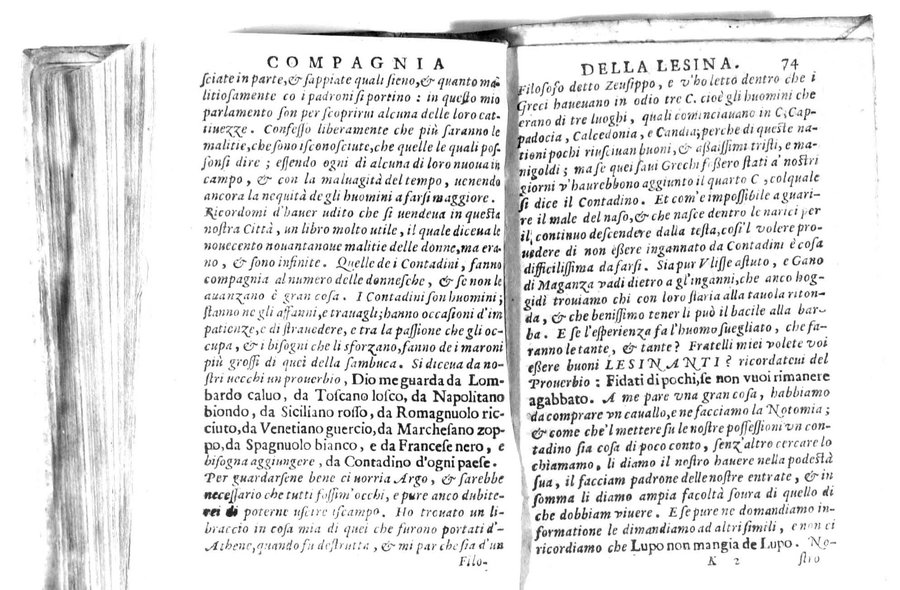 COMPAGNIA
sciate in parte,& sappiate quali sieno,& quanto ma
litiosamente co i padroni si portino : in questo mio
parlamento son per scoprirui alcuna delle loro cat-
tiuezze. Confesso liberamente che più saranno le
malitie,che sono isconosciute,che quelle le quali pos-
sonsi dire ; essendo ogni dì alcuna di loro nuoua in
campo, & con la maluagità del tempo, uenendo
ancora la nequità de gli huomini a farsi maggiore.
Ricordomi d'hauer udito che si uendeua in questa
nostra Città, un libro molto utile, il quale diceua le
nouecento nouantanoue malitie delle donne,ma era-
no, & sono infinite. Quelle de i Contadini, fanno
compagnia al numero delle donnesche, & se non le
auanzano è gran cosa. I Contadini son huomini;
stanno ne gli affanni,e trauagli;hanno occasioni d'im
patienze,e di strauedere, e tra la passione che gli oc-
cupa, & i bisogni che li sforzano,fanno de i maroni
più grossi di quei della sambuca. Si diceua da no-
stri uecchi un prouerbio, Dio me guarda da Lom-
bardo caluo, da Toscano losco, da Napolitano
biondo, da Siciliano rosso, da Romagnuolo ric-
ciuto,da Venetiano guercio,da Marchesano zop-
po,da Spagnuolo bianco, e da Francese nero, e
bisogna aggiungere, da Contadino d'ogni paese.
Per guardarsene bene ci uorria Argo, & sarebbe
necessario che tutti fossim'occhi, e pure anco dubite-
rei di poterne uscire iscampo. Ho trouato un li-
braccio in cosa mia di quei che furono portati d'-
Athene,quando fu destrutta, & mi par che sia d'un
Filo-
DELLA LESINA. 74
Filosofo detto Zeusippo, e v'ho letto dentro che i
Greci haueuano in odio tre C. cioè gli huomini che
erano di tre luoghi, quali cominciauano in C,Cap-
padocia, Calcedonia, e Candia; perche di queste na-
tioni pochi riusciuan buoni, & assaissimi tristi, e ma-
nigoldi ; ma se quei saui Grechi fossero stati a' nostri
giorni v'haurebbono aggiunto il quarto C, col quale
si dice il Contadino. Et com'e impossibile a guari-
re il male del naso,& che nasce dentro le narici per
il continuo descendere dalla testa,cosi'l volere pro-
uedere di non essere ingannato da Contadini è cosa
difficilissima da farsi. Sia pur Vlisse astuto, e Gano
di Maganza vadi dietro a gl'inganni,che anco hog-
gidì trouiamo chi con loro staria alla tauola riton-
da, & che benissimo tener li può il bacile alla bar-
ba. E se l'esperienza fa l'huomo suegliato, che fa-
ranno le tante, & tante? Fratelli miei volete voi
essere buoni LESINANTI? ricordateui del
Prouerbio : Fidati di pochi,se non vuoi rimanere
agabbato. A me pare vna gran cosa, habbiamo
da comprare vn cauallo,e ne facciamo la Notomia;
& come che'l mettere su le nostre possessioni vn con-
tadino sia cosa di poco conto, senz'altro cercare lo
chiamamo, li diamo il nostro hauere nella podestà
sua, il facciam padrone delle nostre entrate, & in
somma li diamo ampia facoltà soura di quello di
che dobbiam viuere. E se pure ne domandiamo in-
formatione le dimandiamo ad altri simili, e non ci
ricordiamo che Lupo non mangia de Lupo. No-
K 2 stro